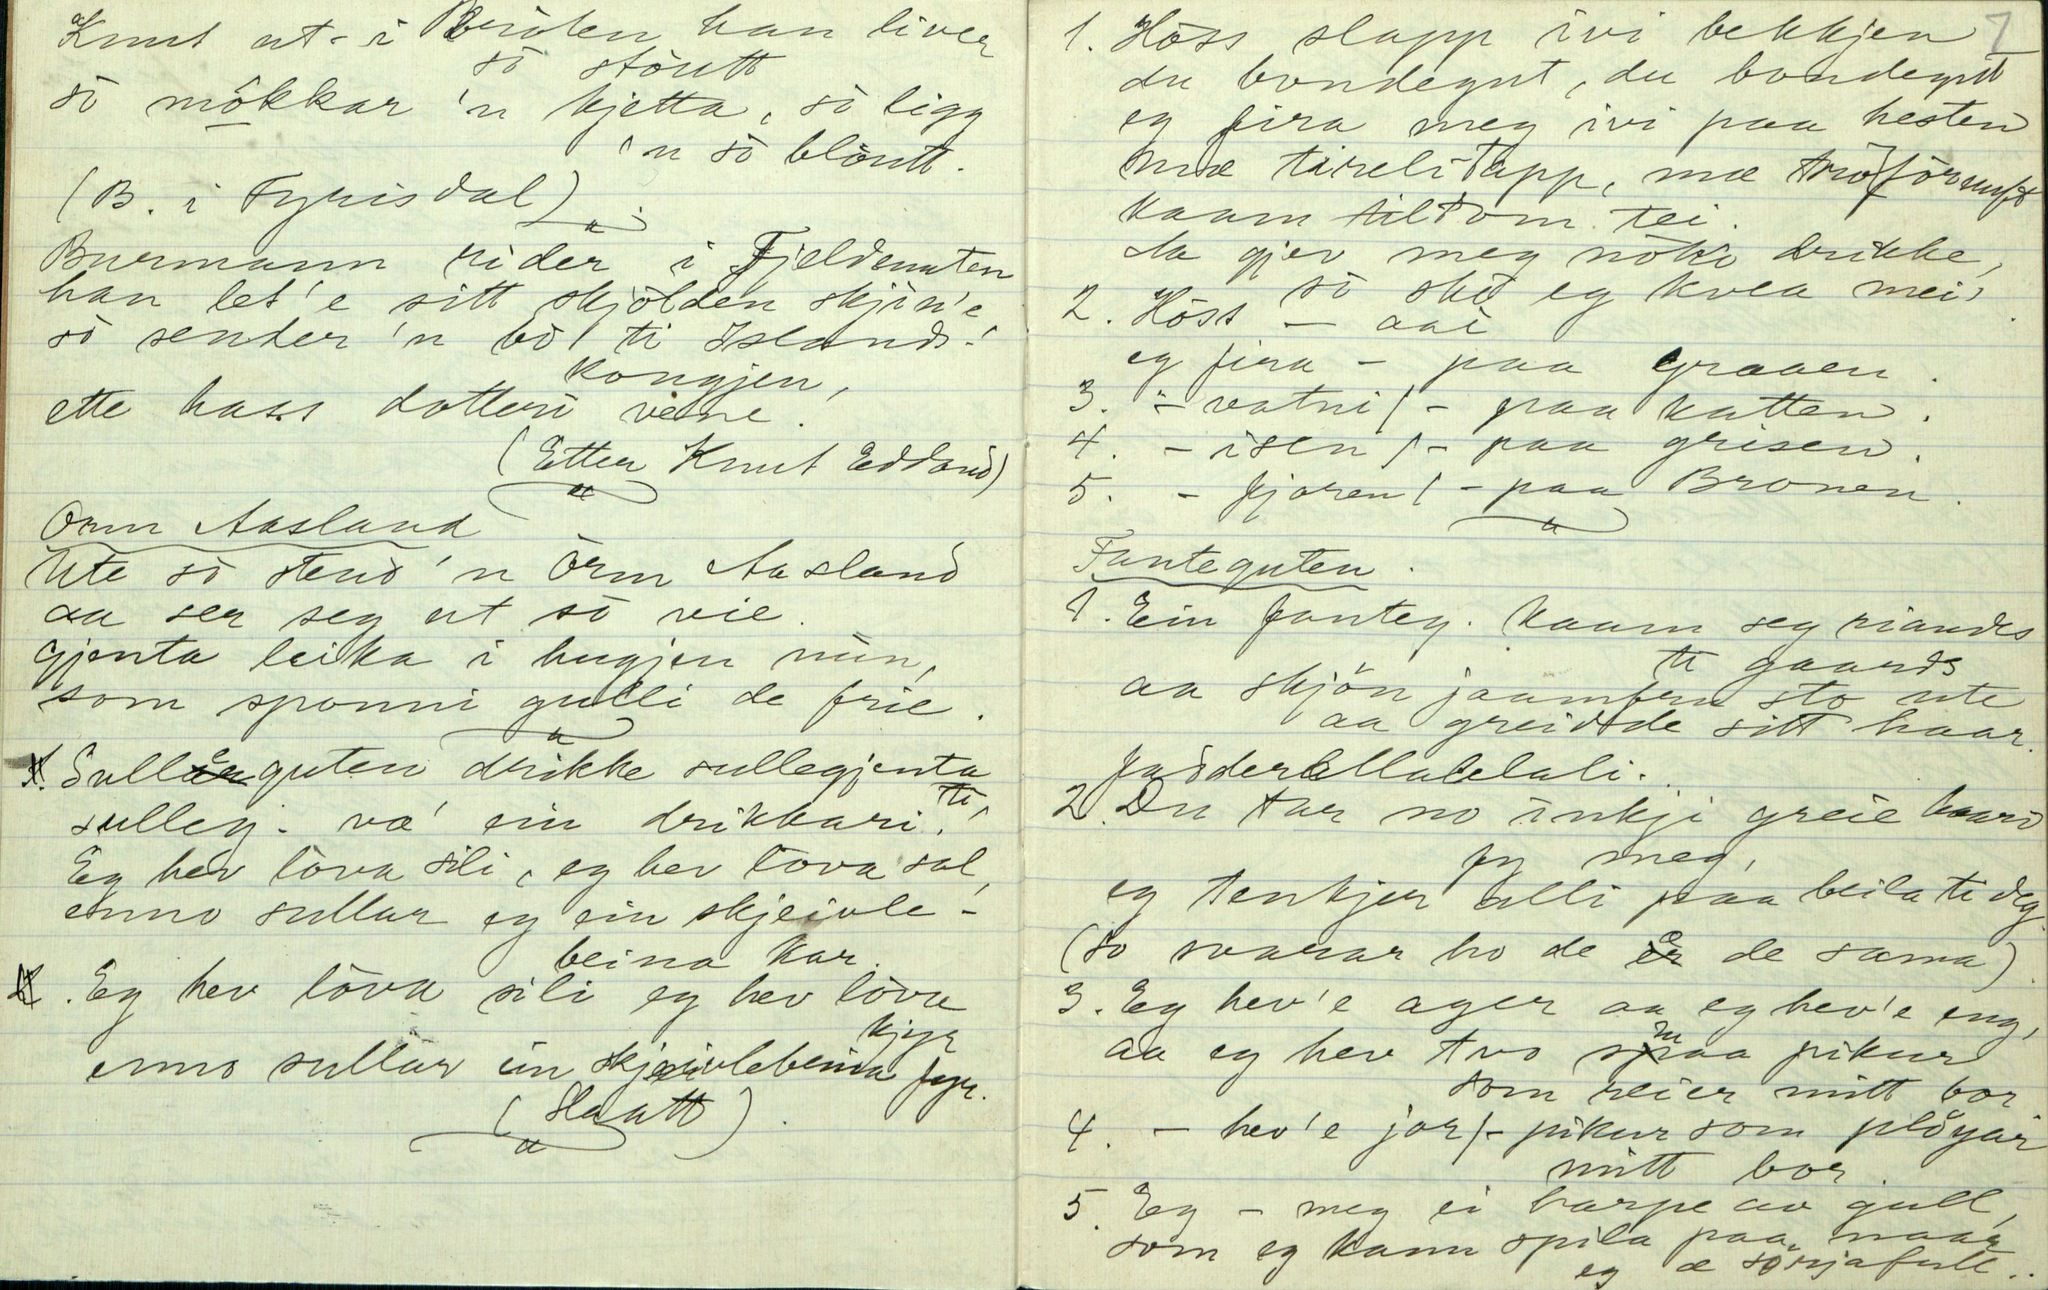 Knut ut- i Bröten han liver
så stöutt
så mökkar 'n kjetta, så ligg
'n så blöutt.
(B. i Fyrisdal)
Burmann rider i Fjeldnuten
han let'e sitt skjölden skjin'e
så sender 'n bö ti Islands-
kongjen,
ette hass dotteri vene!
(Etter Knut Edland)
Orm Aasland
Ute så stend 'n Orm Aasland
aa ser seg ut så vie.
Gjenta leika i hugjen min,
som sponni gulli de frie.
1. Sulleguten drikke sullegjenta
ti,
sulleg. va' ein drikkari.
Eg hev lova sili, eg hev lova sal,
enno sullar eg ein skjeivle-
beina kar.
2. Eg hev lova sili eg hev lova
kjyr
enno sullar ein skjeivlebeina fyr.
(Slaatt)
7
1. Höss slapp ivi bekkjen
du bondegut, du bondegut
eg fira meg ivi paa hesten
mæ tireli-tapp, mæ
kaam tilsom tei.
da gjev meg nöko drikke,
så ska eg kvea mei.
2. Höss - aai
eg fira - paa graaen.
3. - vatni / - paa katten.
4. - isen / - paa grisen.
5. - fjoren / - paa Bronen.
Fanteguten.
1. Ein fanteg. kaam seg riandes
ti gaards
aa skjön jaamfru sto ute
aa greidde sitt haar.
fadderallalelali.
2. Du tar no inkji greie haari
fy meg,
eg tenkjer alli paa beila ti deg.
(so svarar ho de er de sama)
3. Eg hev'e ager aa eg hev'e eng,
aa eg hev tvo smaa pikur
som reier mitt bor
4. - hev'e jor / - pikur som plögar
mitt bor
5. Eg - meg ei harpe av gull,
som eg kann spila paa, naar
eg æ sörgjafull..